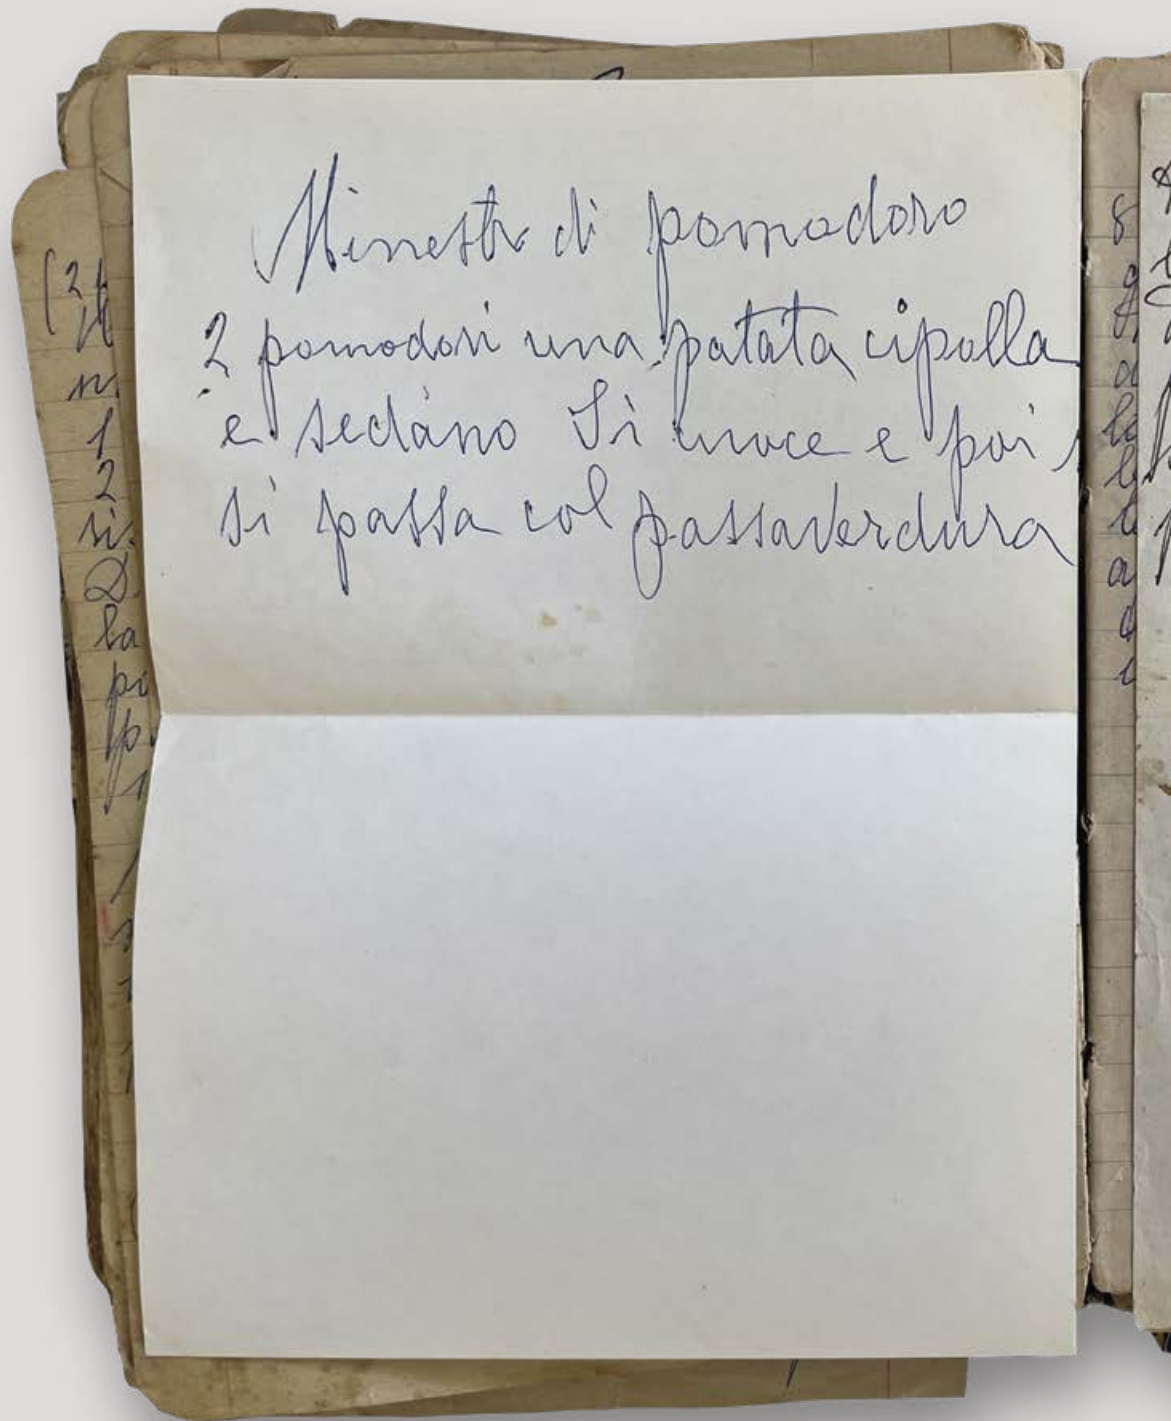 Minestr di pomodoro
2 pomodori una patata cipolla
e sedano Si cuoce e poi
si passa col passaverdura
(2
1
2
si
la
8
a